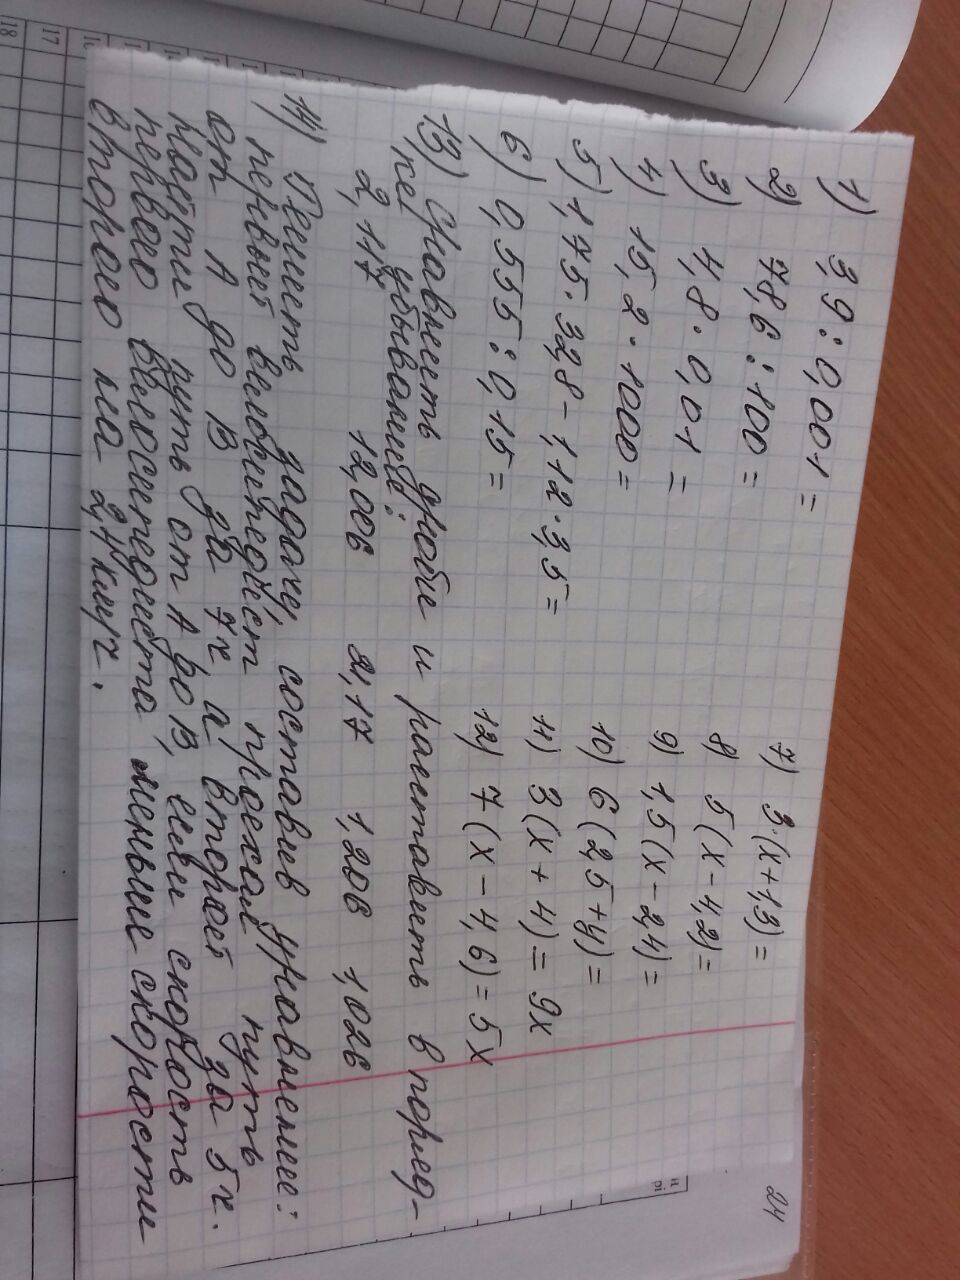 1) 3,9 : 0,001 =
2) 78,6 : 100 =
3) 4,8 · 0,01 =
4) 15,2 · 1000 =
5) 1,75 · 32,8 - 1,12 · 3,5 =
6) 0,555 : 0,15 =
7) 3·(x + 1,3) =
8) 5(x - 4,2) =
9) 1,5(x - 2,4) =
10) 6(2,5 + y) =
11) 3(x + 4) = 9x
12) 7(x - 4,6) = 5x
13) Сравнить дроби и расставить в поряд-
ке убывания:
2,117 12,006 21,17 1,206 1,026
14) Решить задачу, составив уравнение:
первый велосипедист проехал путь
от А до В за 7ч, а второй за 5ч.
Найти путь от А до В, если скорость
первого велосипедиста меньше скорости
второго на 2,4 км/ч.
24
17
18